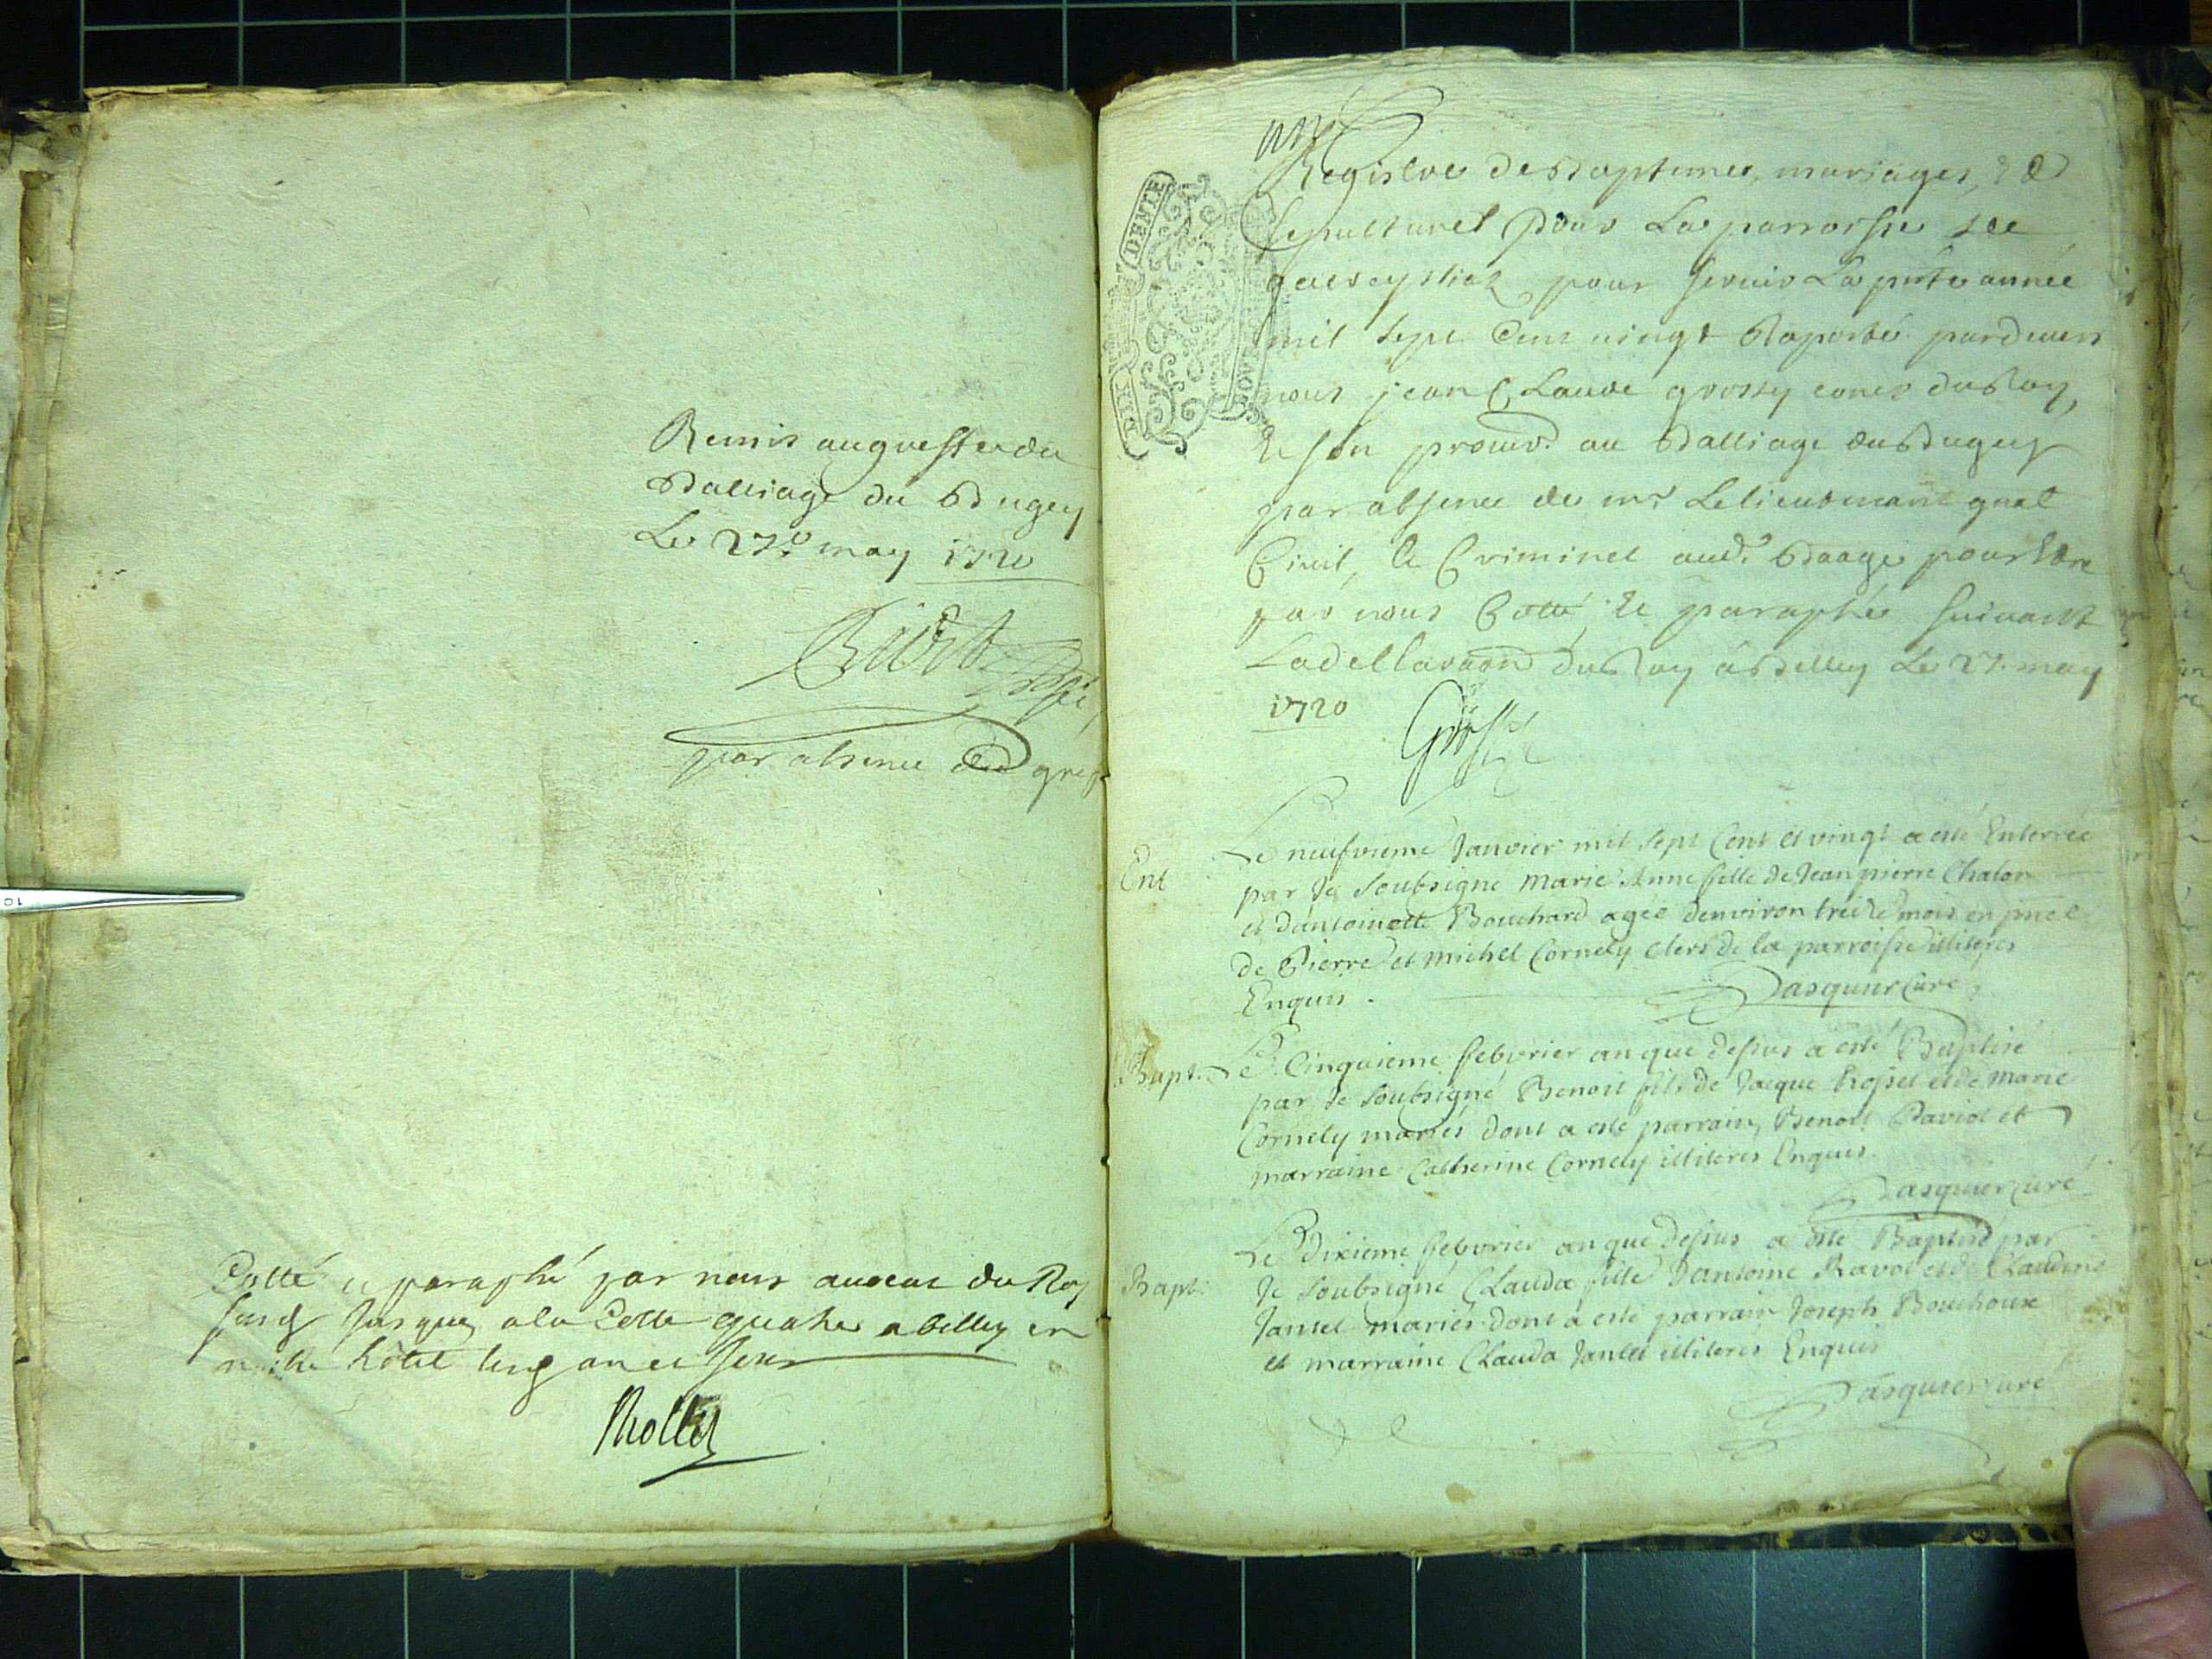 Remis au greffe du
Balliage du Bugey
Le 27e may 1720
par absence du gref
Cotté et paraphé par nous avocat du Roy
jusques a la Cotte quatre a billey en
notre hôtel
Registre des Baptemes, mariages, et
Sepultures pour La parroisse de
pour servir La pnte année
mil sept Cens vingt Raporté pardevers
nous jean Claude grossy coner du Roy,
et son procur. au Balliage du Bugey
par absence de mr Le lieutenant gnal
Civil, et Criminel aud. Baage pour Etre
par nous Cotté, et paraphé suivant
La declaraon du Roy à Belley Le 27. may
1720
Grossy
Ent
Le neufvieme Janvier mil sept Cent et vingt a esté Enterrée
par Je Soubsigné Marie Anne fille de Jean pierre Chalon
et d'antoinette Bouchard agée denviron treize mois en pnce
de Pierre et michel Cornely clers de la parroisse illiterés
Enquis.
Pasquier Curé
Bapt.
Le Cinquieme febvrier an que dessus a esté Baptisé
par Je Soubsigné Benoit fils de Jacque et de Marie
Cornely mariés dont a esté parrain, Benoit Paviot et
marraine Catherine Cornely illiterés Enquis.
Pasquier curé
Bapt.
Le Dixieme febvrier an que dessus a esté Baptisé par
Je Soubsigné Clauda fille d'antoine Ravot et de Claudine
Jantet mariés dont a esté parrain Joseph Bouchoux
et marraine Clauda Jantet illiterés Enquis
Pasquier curé